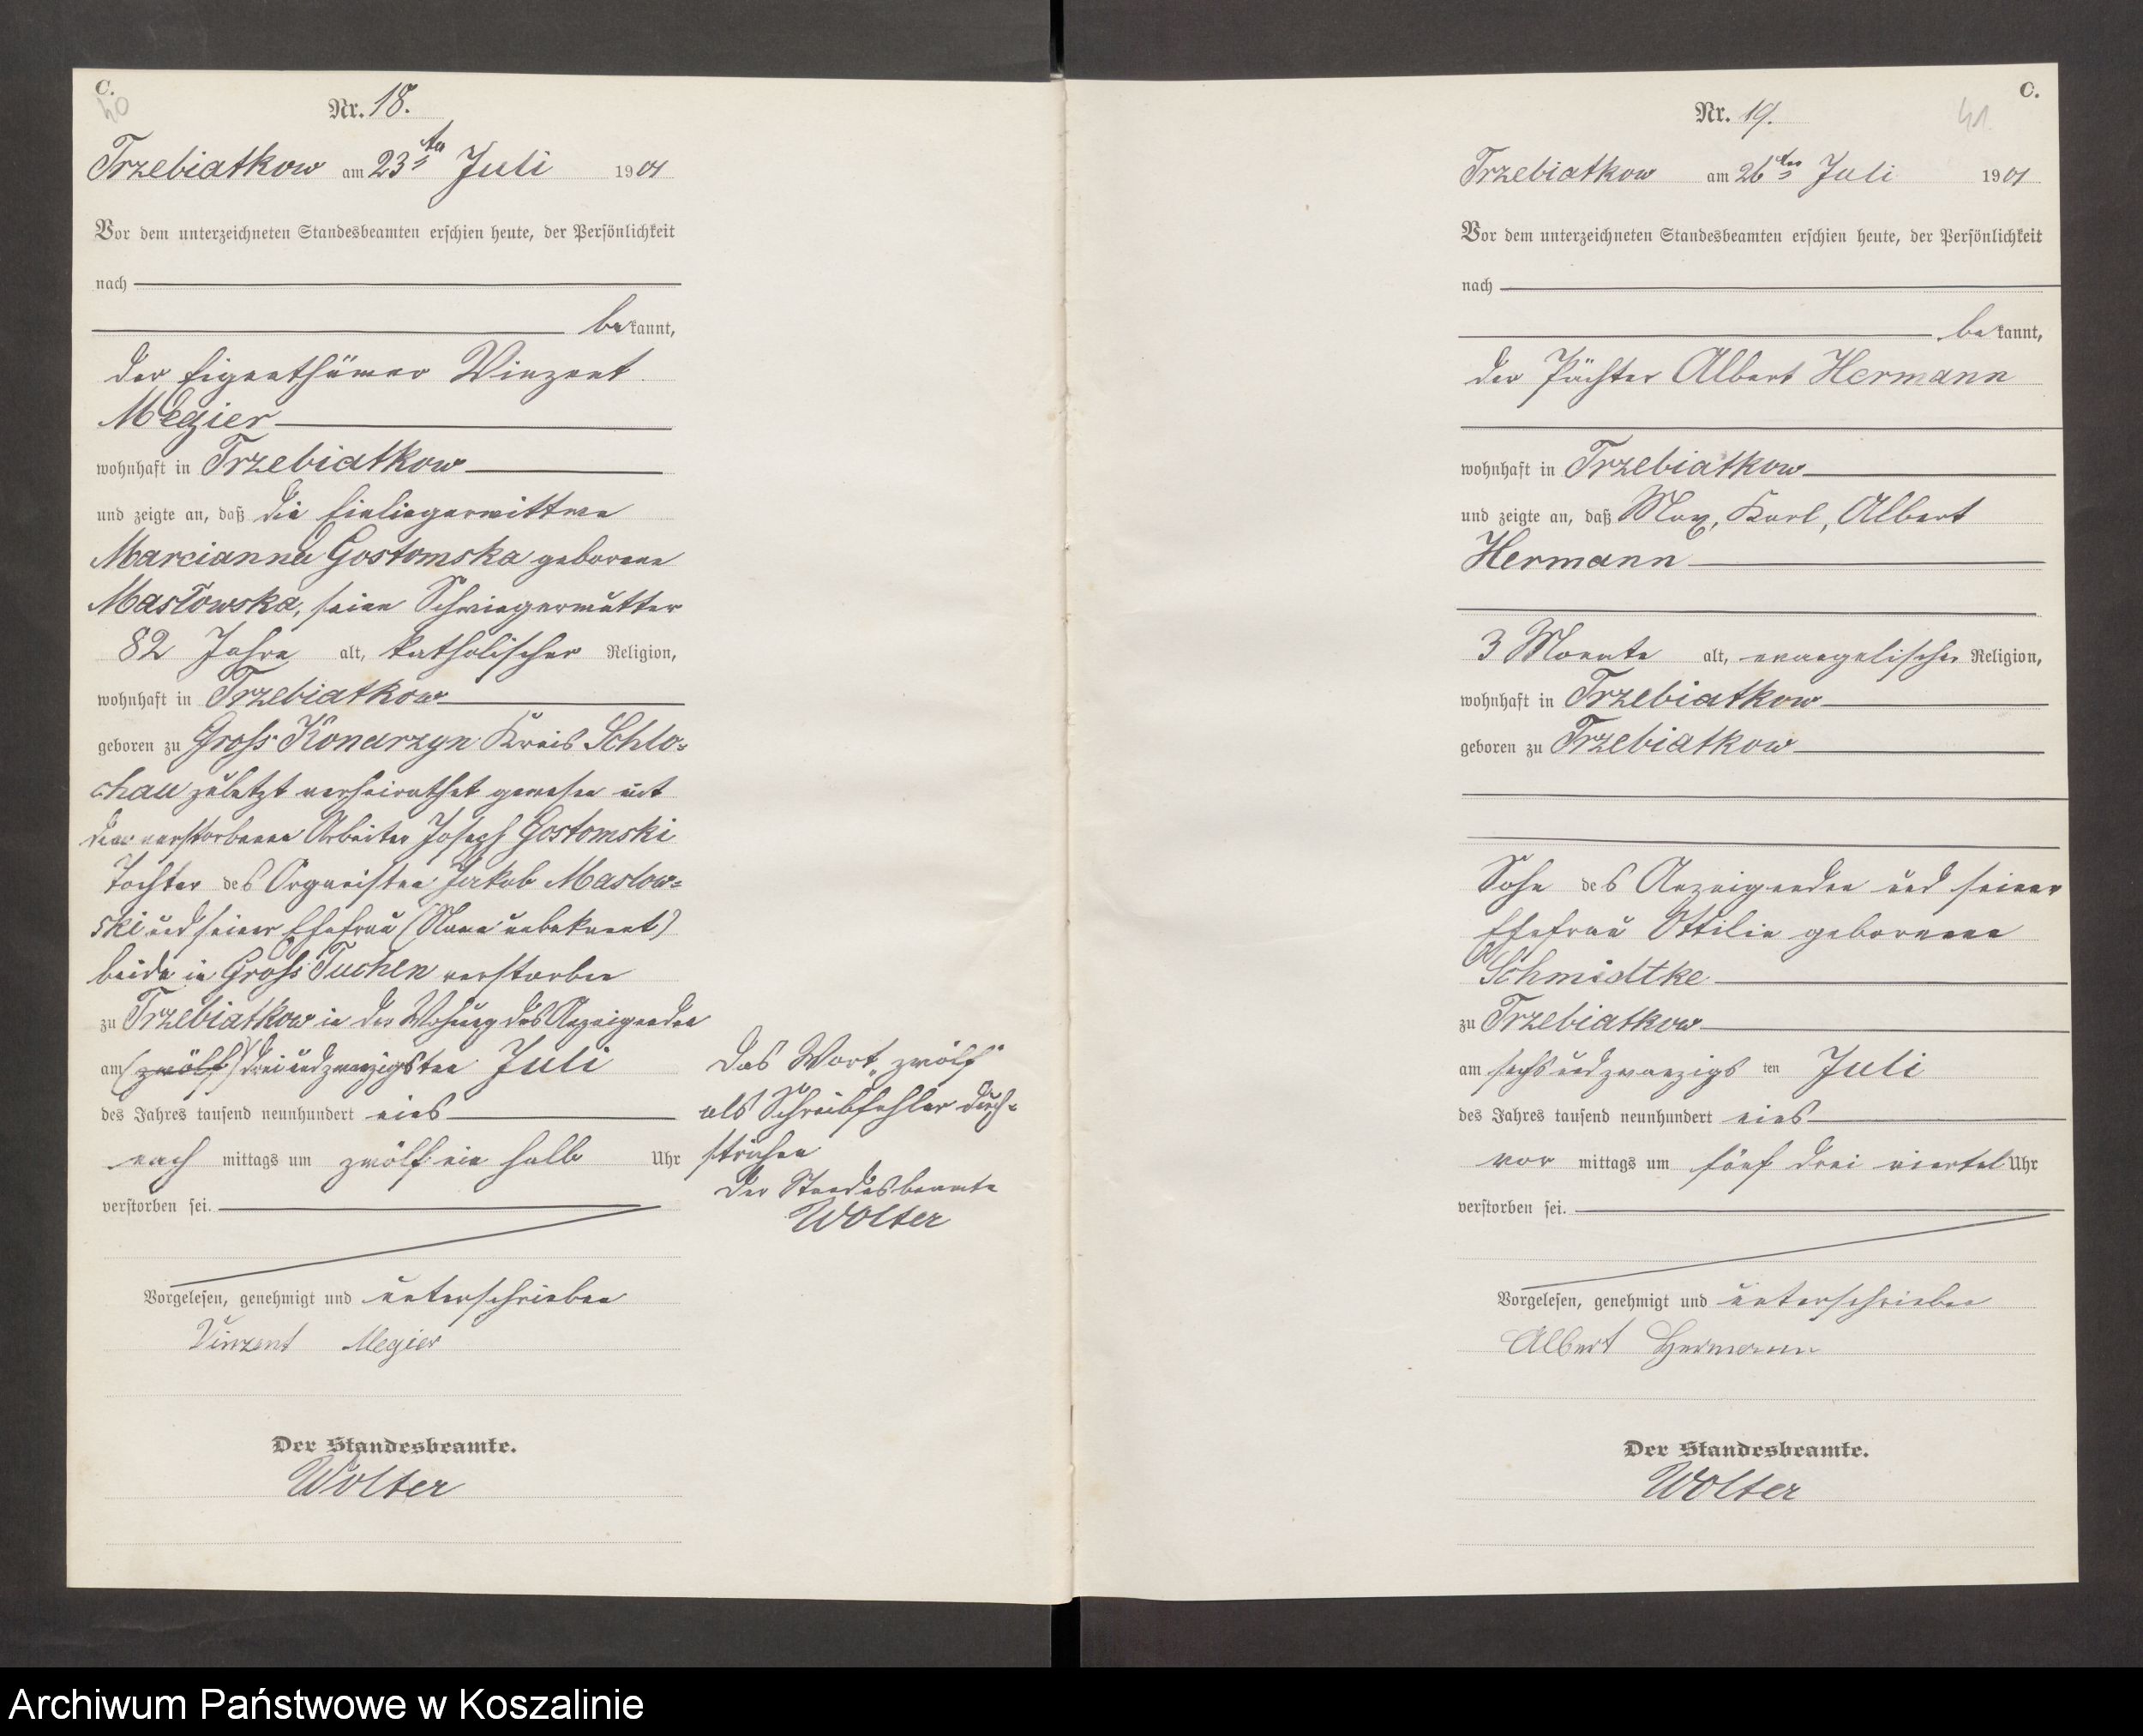 C.
40
Nr. 18.
Trzebiatkow am 23ten Juli 1901
Vor dem unterzeichneten Standesbeamten erschien heute, der Persönlichkeit
nach
bekannt,
der Eigenthümer Vinzent
Megier
wohnhaft in Trzebiatkow
und zeigte an, daß die Einliegerwittwe
Marcianna Gostomska geborene
Masłowska, seine Schwiegermutter
82 Jahre alt, katholischer Religion,
wohnhaft in Trzebiatkow
geboren zu Gross Konarzyn Kreis Schlo-
chau zuletzt verheirathet gewesen mit
dem verstorbenen Arbeiter Joseph Gostomski
Tochter des Organisten Jakob Maslow-
ski und seiner Ehefrau (Name unbekannt)
beide in Gross Tuchen verstorben
zu Trzebiatkow in der Wohnung des Anzeigenden
am (zwölf) dreiundzwanzigsten Juli
des Jahres tausend neunhundert eins
nach mittags um zwölf ein halb Uhr
verstorben sei.
Vorgelesen, genehmigt und unterschrieben
Vinzent Megier
Der Standesbeamte.
Wolter
Das Wort „zwölf"
als Schreibfehler durch-
strichen
Der Standesbeamte
Wolter
C.
41.
Nr. 19.
Trzebiatkow am 26ten Juli 1901
Vor dem unterzeichneten Standesbeamten erschien heute, der Persönlichkeit
nach
bekannt,
der Pächter Albert Hermann
wohnhaft in Trzebiatkow
und zeigte an, daß Max, Karl, Albert
Hermann
3 Monate alt, evangelischer Religion,
wohnhaft in Trzebiatkow
geboren zu Trzebiatkow
Sohn des Anzeigenden und seiner
Ehefrau Ottilie geborenen
Schmidtke
zu Trzebiatkow
am sechsundzwanzigsten Juli
des Jahres tausend neunhundert eins
vor mittags um fünf drei viertel Uhr
verstorben sei.
Vorgelesen, genehmigt und unterschrieben
Albert Hermann
Der Standesbeamte.
Wolter
Archiwum Państwowe w Koszalinie